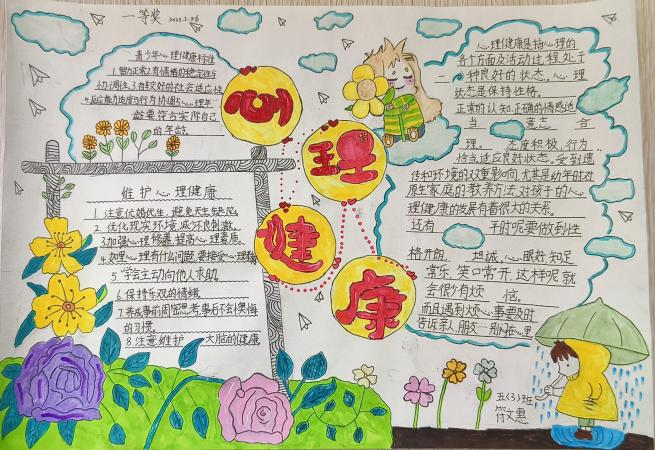 一等奖
青少年心理健康标准
1.智力正常2.有情绪的稳定性与
协调性、3.有较好的社会适应性
4.反应能力适度与行为协调5心理年
龄要符合实际自己
的年龄
心
理
健
康
维护心理健康
1.注意优婚优生,避免天生缺陷。
2.优化现实环境,减少不良刺激。
3.加强心理修养,提高心理素质。
4.如果心理有什么问题,要接受心理
5.学会主动向他人求助。
6.保持乐观的情绪。
7.养成事前周密思考,事后不会懊悔
的习惯。
8.注意维护 大脑的健康
心理健康是指心理的
各个方面及活动过程处于
一种良好的状态,心理
状态是保持性格。
正常的认知、正确的情感适
当 意志 合
理。 态度积极,行为
恰当适应良好状态。受到遗
传和环境的双重影响,尤其是幼年时对
原生家庭的教养方法,对孩子的心
理健康的发展有着很大的关系。
还有 平时呢要做到性
格开朗、 坦诚、心眼好知足
常乐,笑口常开,这样呢就
会很少有烦 恼。
而且遇到烦 心事要及时
告诉亲人、朋友…别闷在心里
五(3)班
符文惠